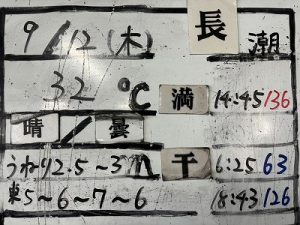 9/12(木) 長潮
32℃ 満 14:45 136
晴/曇
うねり2.5~3m 干 6:25 63
東5~6~7~6 18:43 126